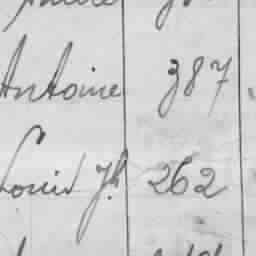 Antoine 387
Louis Jh 262